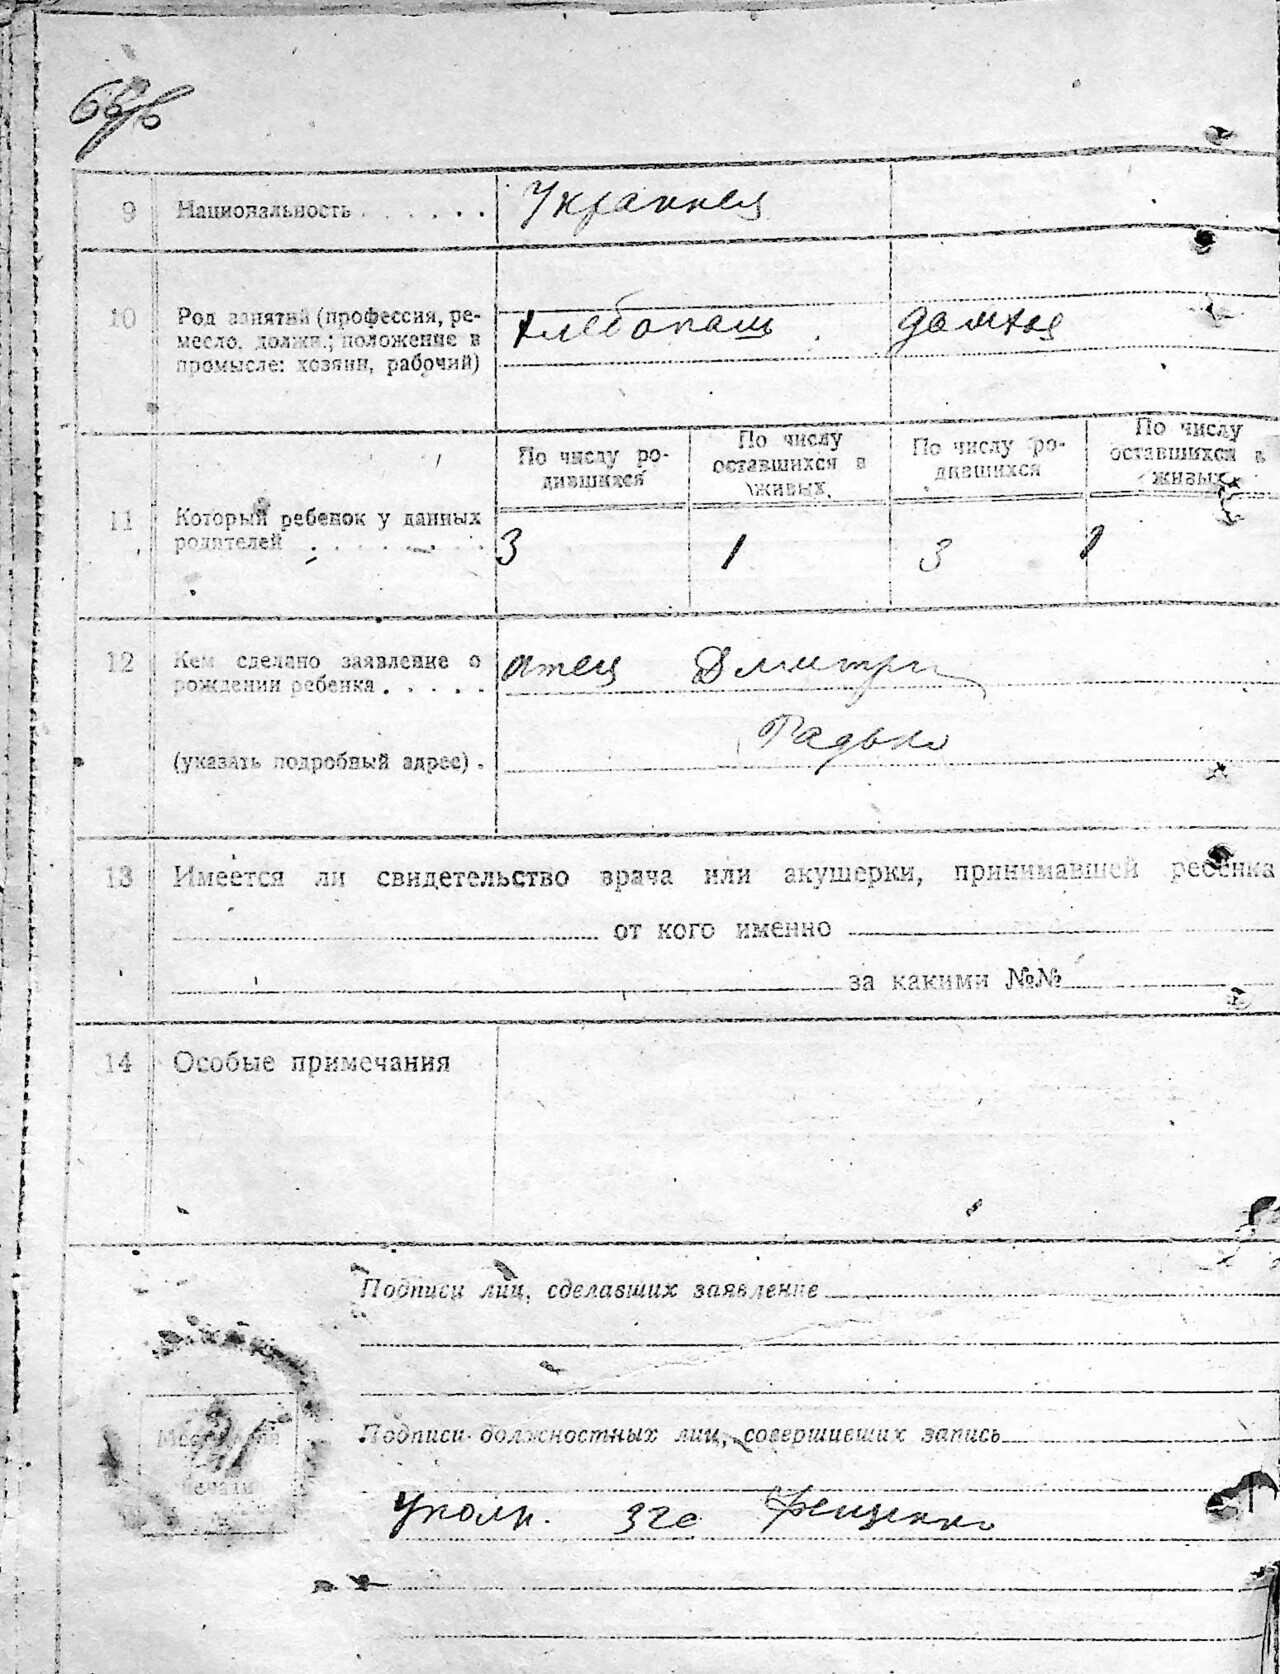 9 Национальность . . . . . . Украинец
10 Род занятий (профессия, ремесло, должн.; положение в промысле: хозяин, рабочий) Хлебопаш. домхоз
По числу родившихся
По числу оставшихся в живых
По числу родившихся
По числу оставшихся в живых
11 Который ребенок у данных
родителей . . . . . . . 3 1 3 1
12 Кем сделано заявление о отец Дмитри
рождении ребенка . . . . .
Радько
(указать подробный адрес) .
13 Имеется ли свидетельство врача или акушерки, принимавшей ребенка
от кого именно
за какими №№
14 Особые примечания
Подписи лиц, сделавших заявление
Подписи должностных лиц, совершивших запись
Место для
печати
Уполн. згс Фещенко